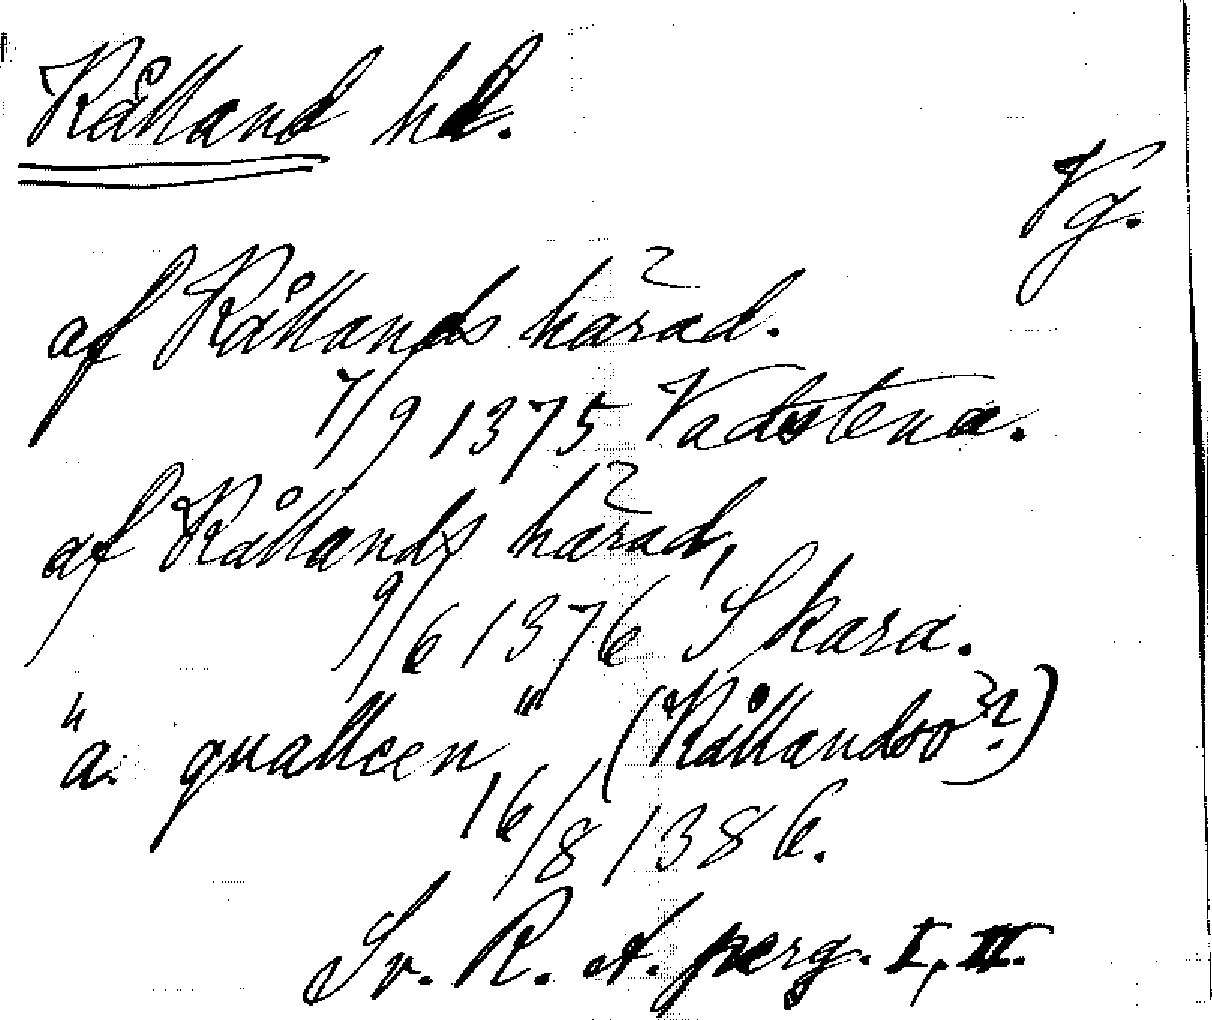 Kålland hd.
Vg.
af Kållands härad.
7/9 1375 Vadstena.
af Kållands härad,
9/6 1376 Skara.
"a. quallcen" (Kållandsö?)
16/8 1386.
Sv. R. A. perg. I, II.